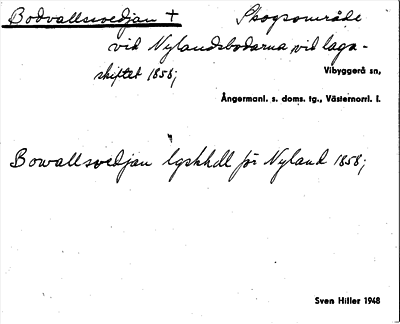 Bodvallssvedjan + Skogsområde
vid Nylandsbodarna vid laga-
skiftet 1858;
Vibyggerå sn,
Ångermanl. s. doms. tg., Västernorrl. l.
Bowallsvedjan lgskhdl för Nyland 1858;
Sven Hiller 1948